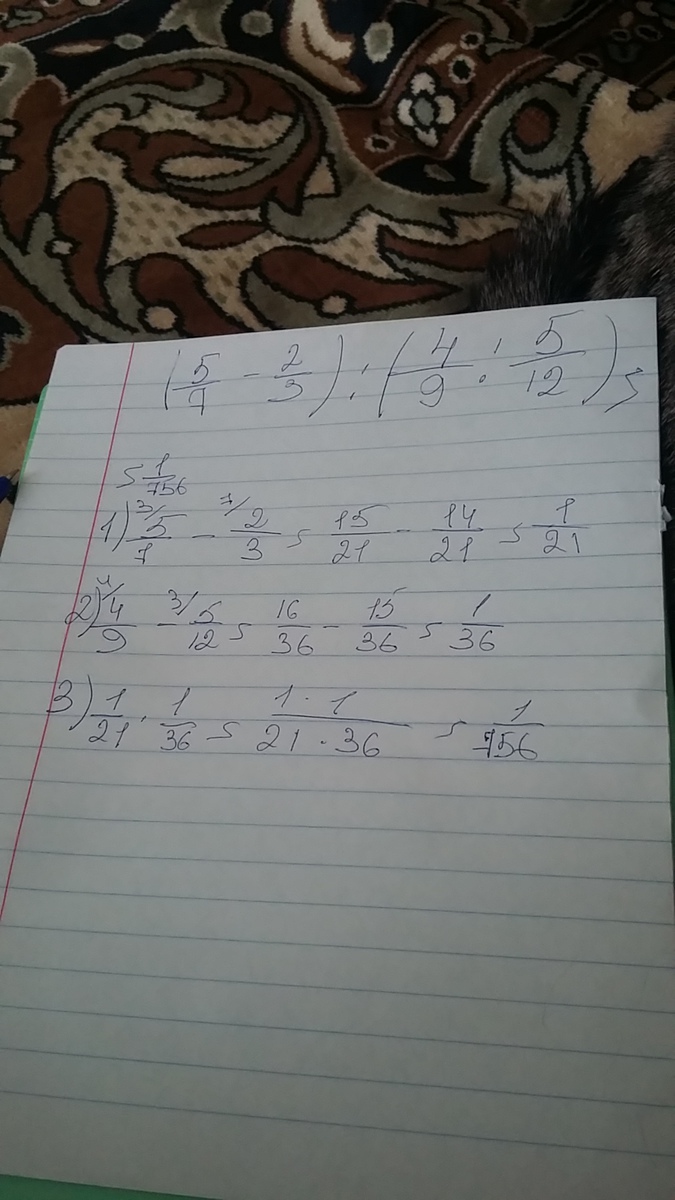 (5/7 - 2/3) : (4/9 : 5/12) =
= 1/756
1) 3/ 5/7 - 7/ 2/3 = 15/21 - 14/21 = 1/21
2) 4/ 4/9 - 3/ 5/12 = 16/36 - 15/36 = 1/36
3) 1/21 · 1/36 = 1 · 1/21 · 36 = 1/756